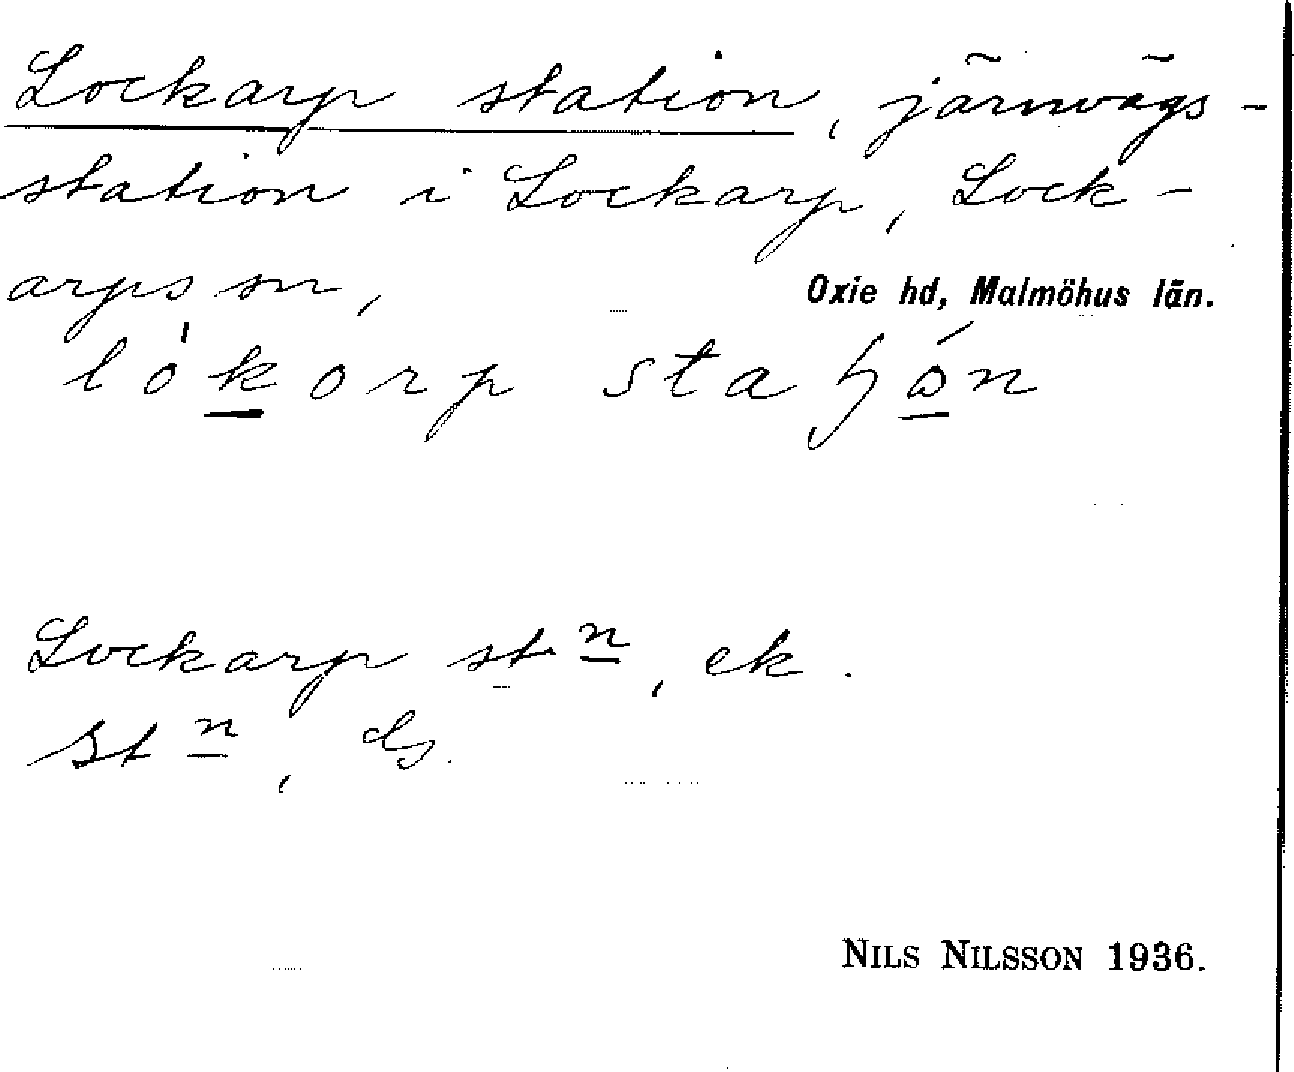 Lockarp station, järnvägs-
station i Lockarp, Lock-
arps sn,
Oxie hd, Malmöhus län.
lókorp staɧón
Lockarp stn, ek.
stn, ds.
NILS NILSSON 1936.